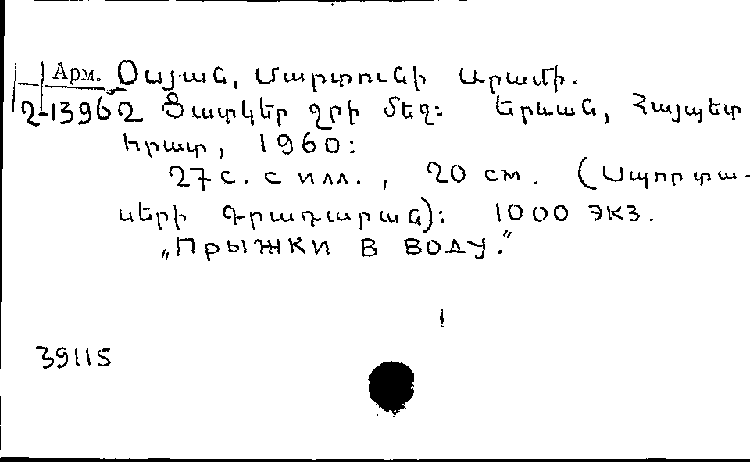 Арм. Օայան, Մարտունի Արամի.
2-13962 Ցատկեր ջրի մեջ: Երևան, Հայպետ
հրատ, 1960:
27 с. с илл., 20 см. (Սպորտա-
սերի Գրադարան): 1000 экз.
„Прыжки в воду."
39115